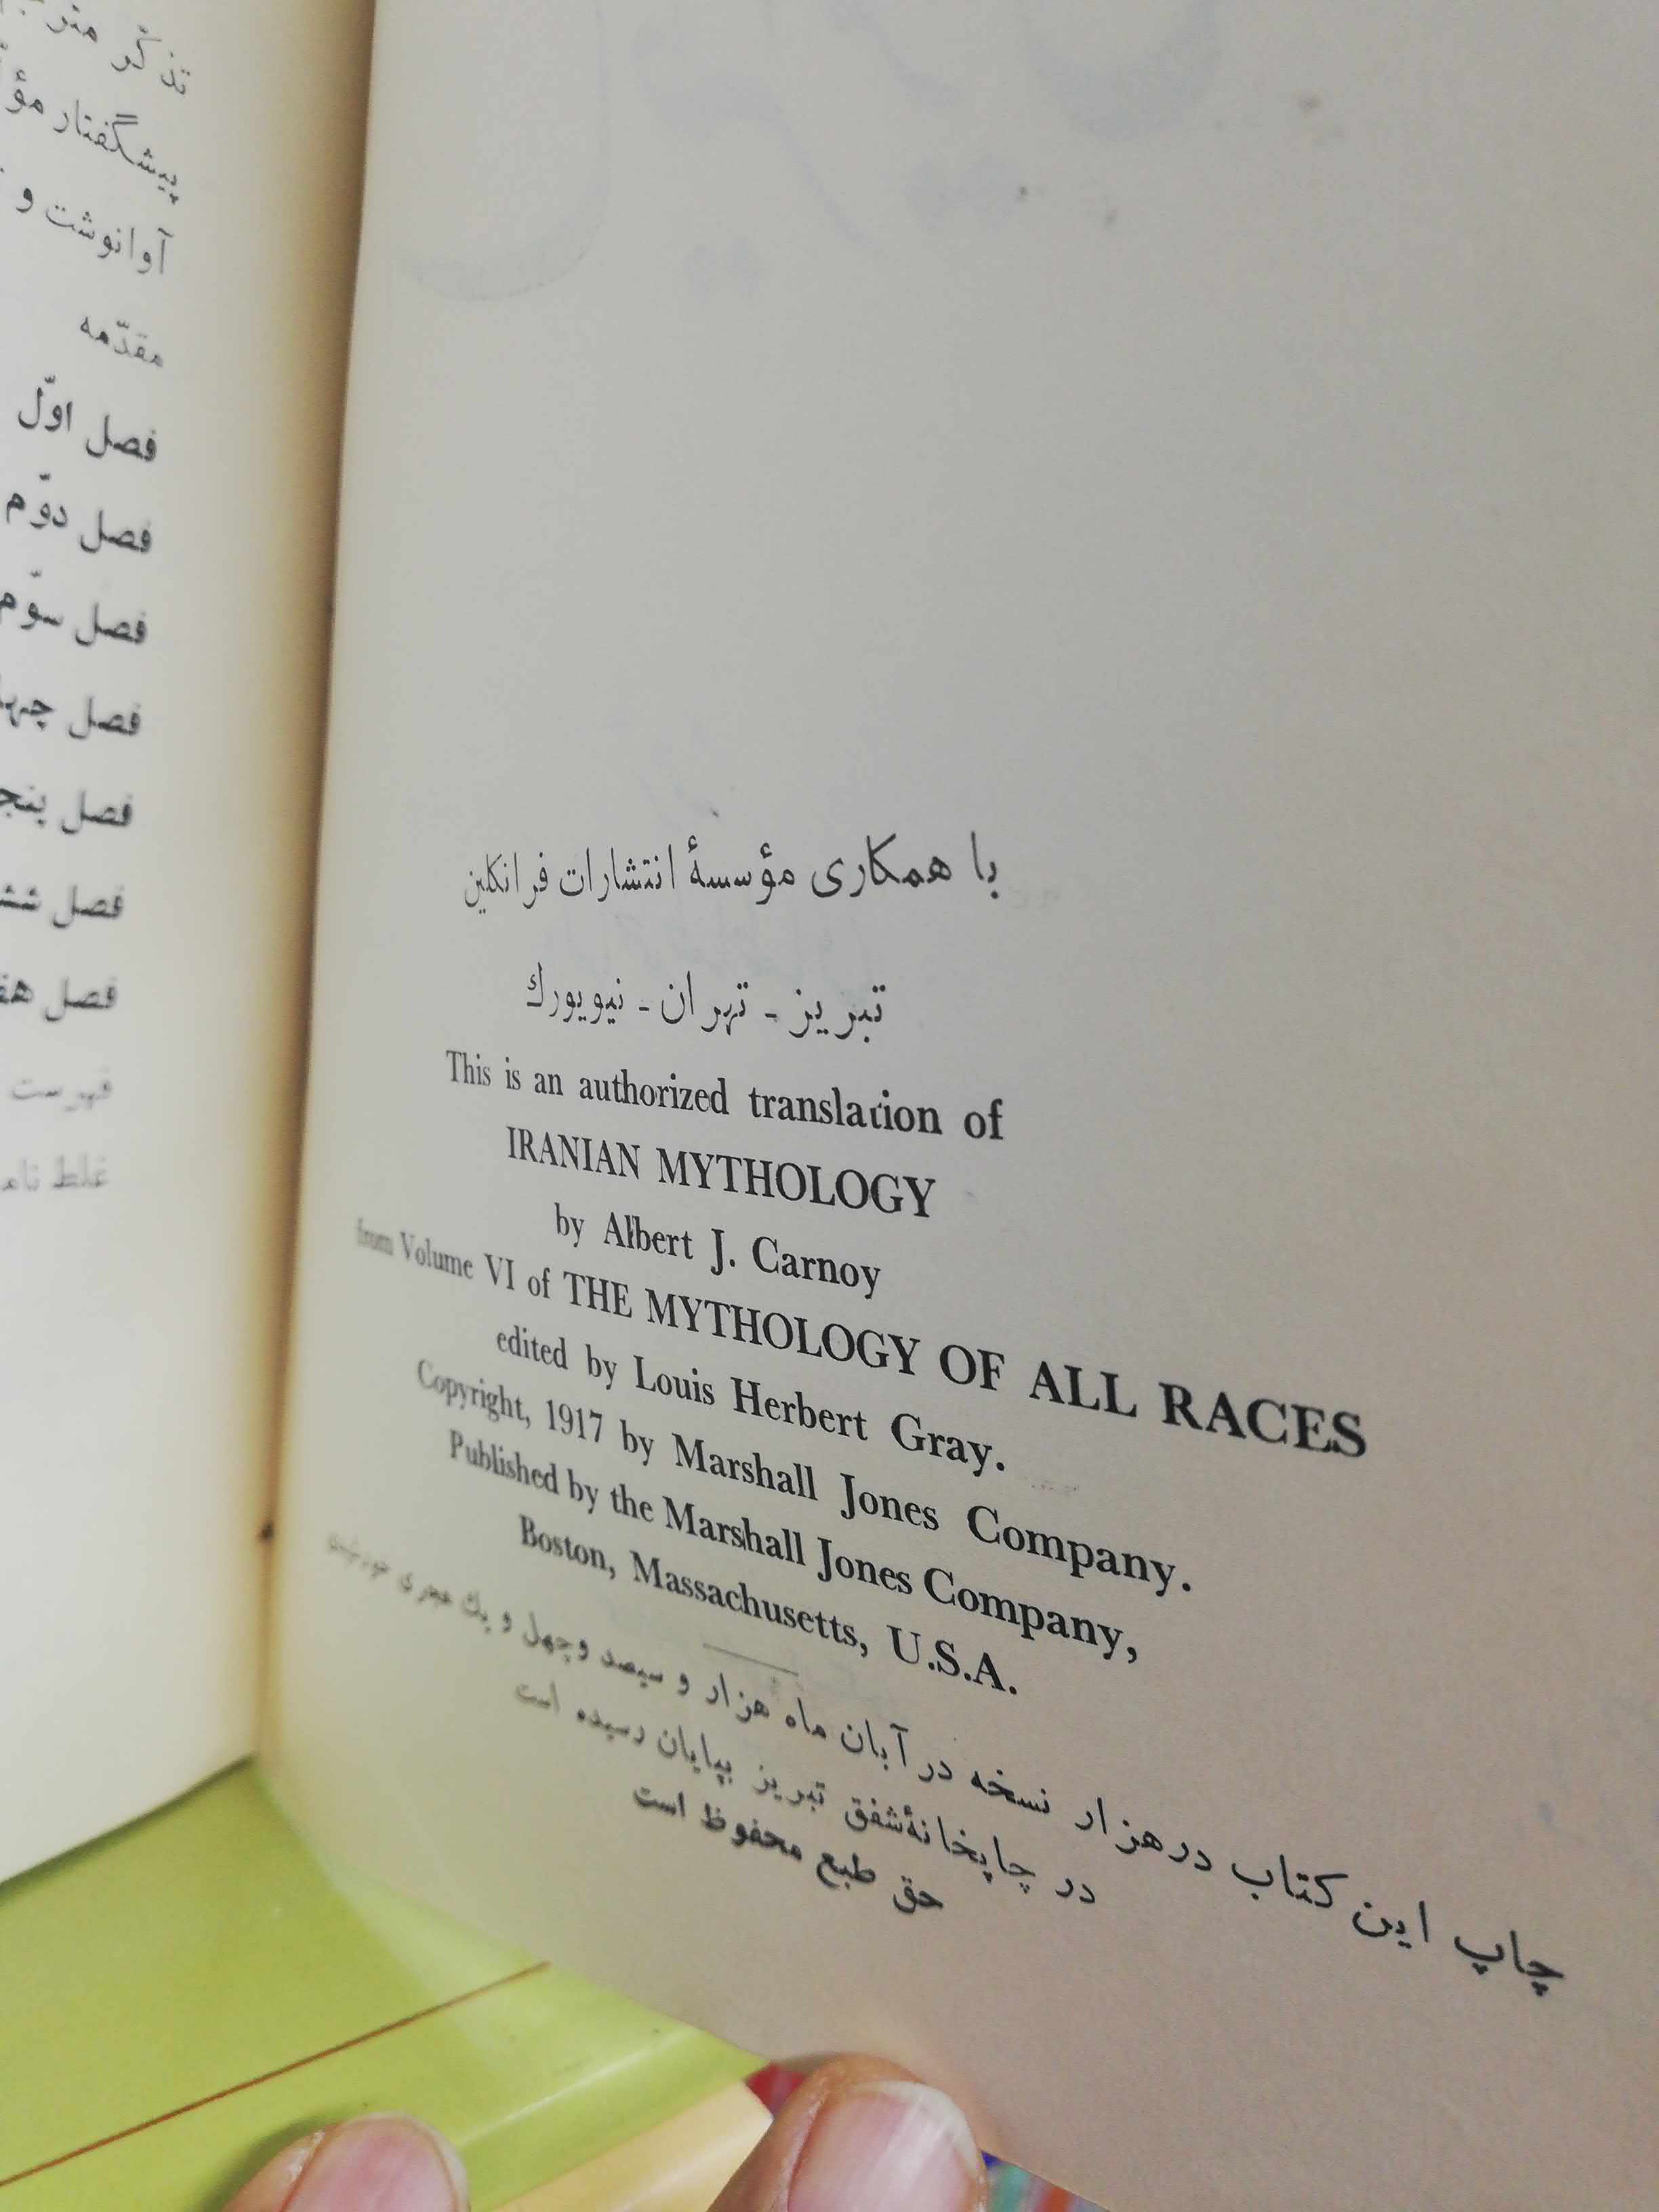 با همکاری مؤسسهٔ انتشارات فرانکلین
تبریز - تهران - نیویورك
This is an authorized translation of
IRANIAN MYTHOLOGY
by Albert J. Carnoy
from Volume VI of THE MYTHOLOGY OF ALL RACES
edited by Louis Herbert Gray.
Copyright, 1917 by Marshall Jones Company.
Published by the Marshall Jones Company,
Boston, Massachusetts, U.S.A.
چاپ این کتاب در هزار نسخه در آبان ماه هزار و سیصد و چهل و یك هجری خورشیدی
در چاپخانهٔ شفق تبریز بپایان رسیده است
حق طبع محفوظ است
تذکّر
پیشگفتار
آوانوشت و
مقدّمه
فصل اوّل
فصل دوّم
فصل سوّم
فصل
فصل
فصل
فصل
فهرست
غلط